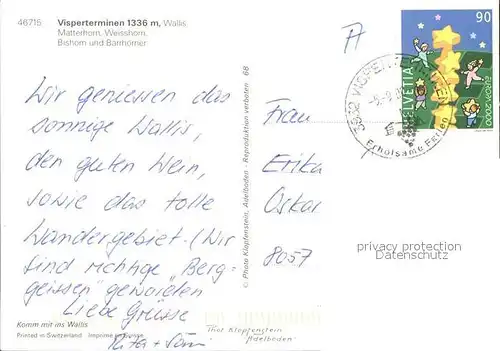 46715 Visperterminen 1336 m, Wallis
Matterhorn, Weisshorn,
Bishorn und Barrhörner
Wir geniessen das
sonnige Wallis,
den guten Wein,
sowie das tolle
Wandergebiet. (Wir
sind richtige "Berg-
geissen" geworden
Liebe Grüsse
Rita +
Komm mit ins Wallis
Printed in Switzerland Imprimé en Suisse
© Photo Klopfenstein, Adelboden - Reproduktion verboten 68
A
HELVETIA
90
EUROPA 2000
3932 VISPERTERMINEN
Erholsame Ferien
Frau
Erika
Oskar
8057
privacy protection
Datenschutz
Thor Klopfenstein
Adelboden